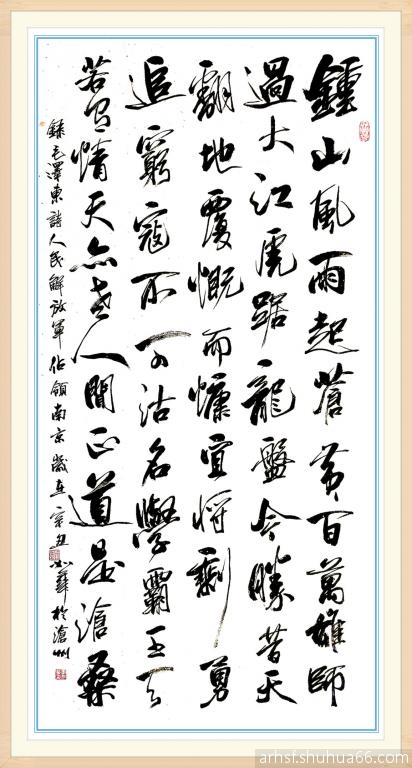 鍾山風雨起蒼黃百萬雄師
過大江虎踞龍盤今勝昔天
翻地覆慨而慷宜將剩勇
追窮寇不可沽名學霸王天
若有情天亦老人間正道是滄桑
錄毛澤東詩人民解放軍佔領南京歲在辛丑於滄州
arhsf.shuhua66.com